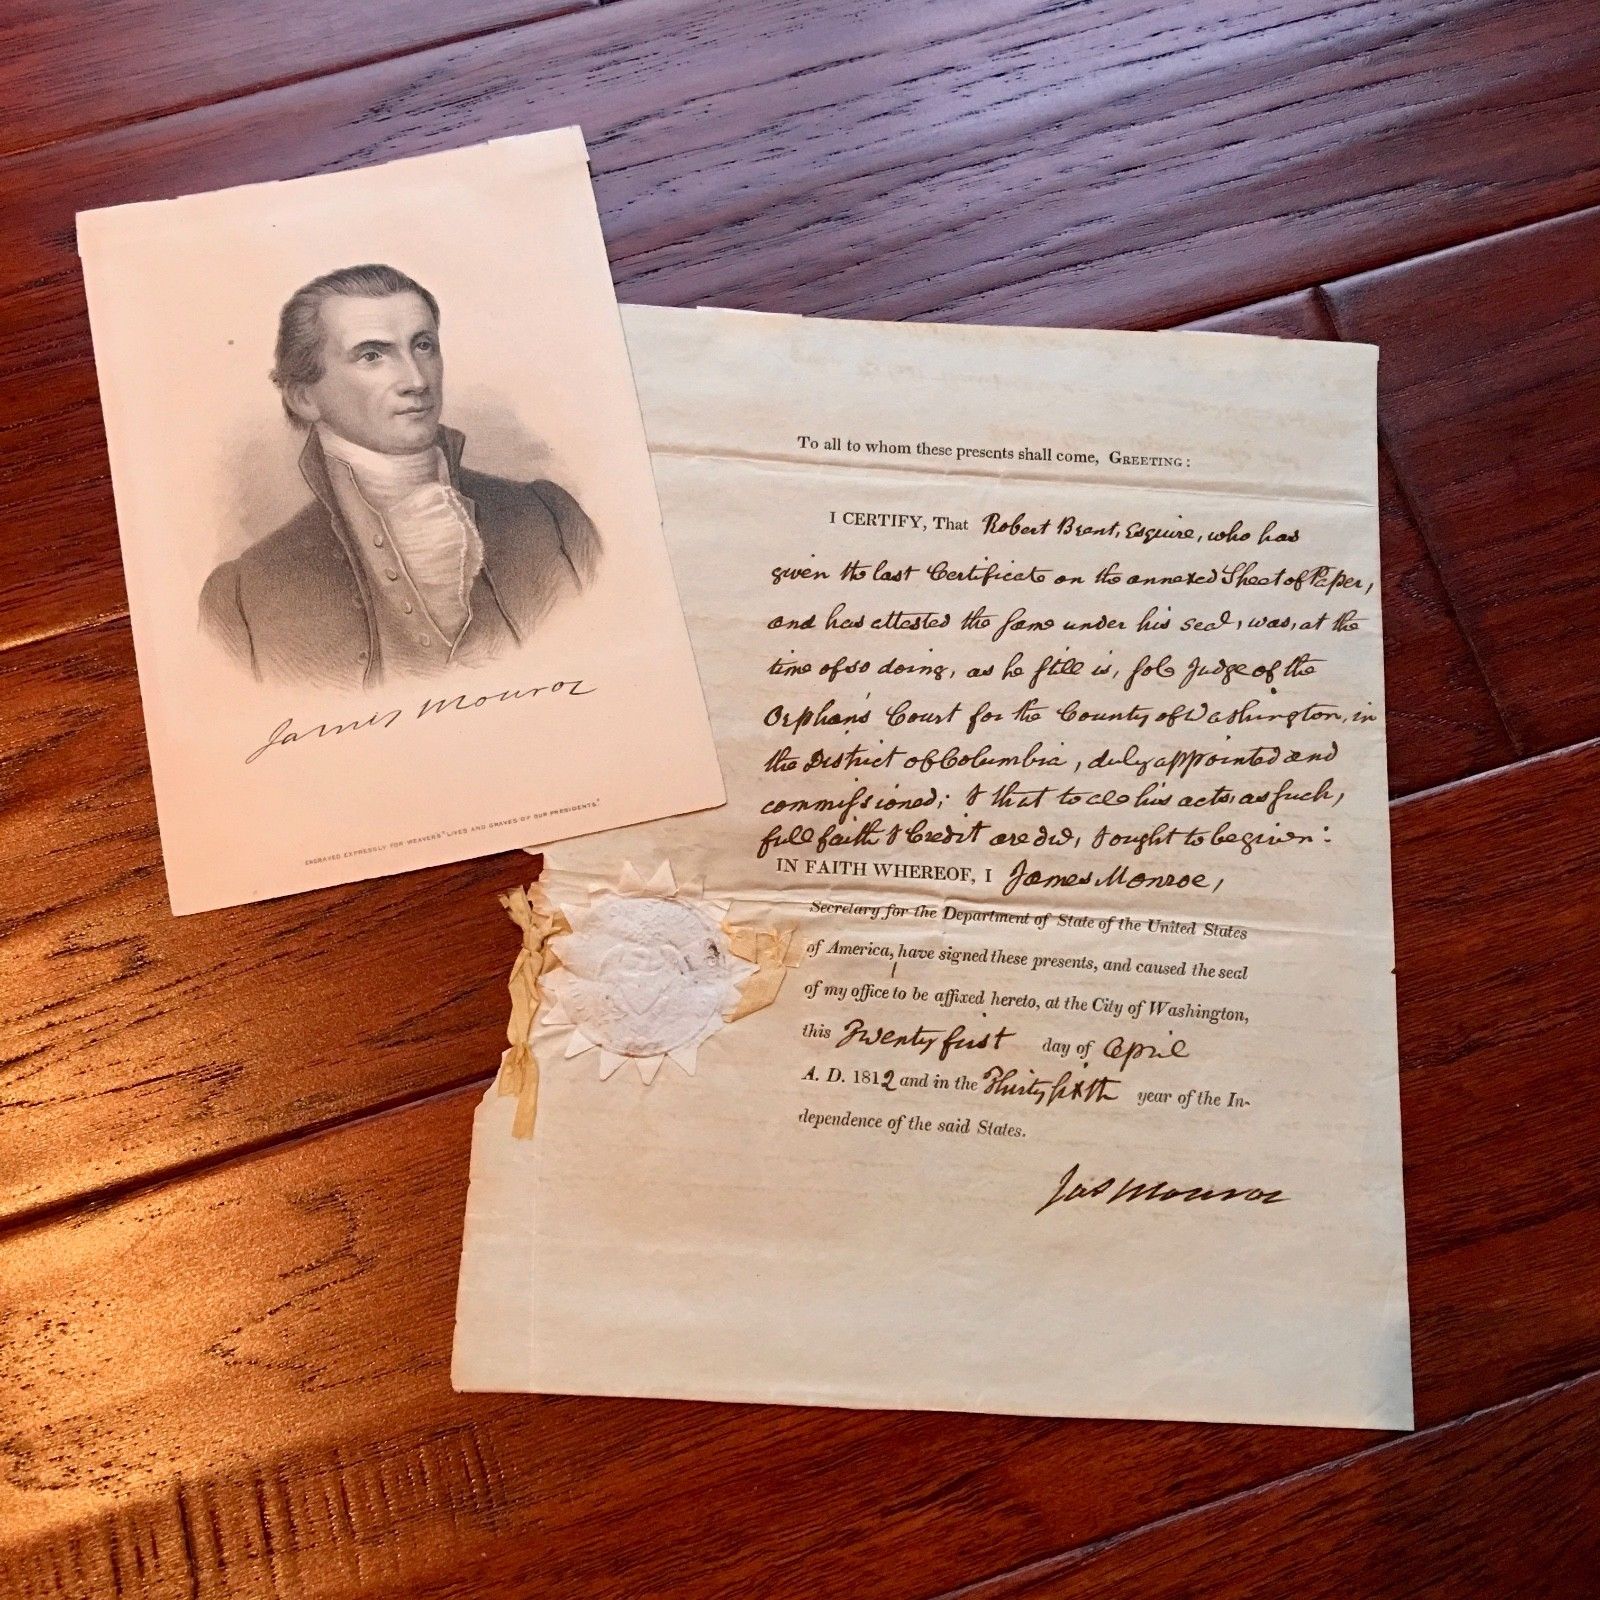 James Monroe
ENGRAVED EXPRESSLY FOR WEAVERS' "LIVES AND GRAVES OF OUR PRESIDENTS"
To all to whom these presents shall come, GREETING:
I CERTIFY, That Robert Brent, Esquire, who has
given the last Certificate on the annexed Sheet of Paper,
and has attested the same under his seal, was, at the
time of so doing, as he still is, sole Judge of the
Orphan's Court for the County of Washington, in
the District of Columbia, duly appointed and
commissioned; & that to all his acts, as such,
full faith & Credit are due, & ought to be given:
IN FAITH WHEREOF, I James Monroe,
Secretary for the Department of State of the United States
of America, have signed these presents, and caused the seal
of my office to be affixed hereto, at the City of Washington,
this Twenty first day of April
A. D. 1812 and in the Thirty sixth year of the In-
dependence of the said States.
Jas Monroe